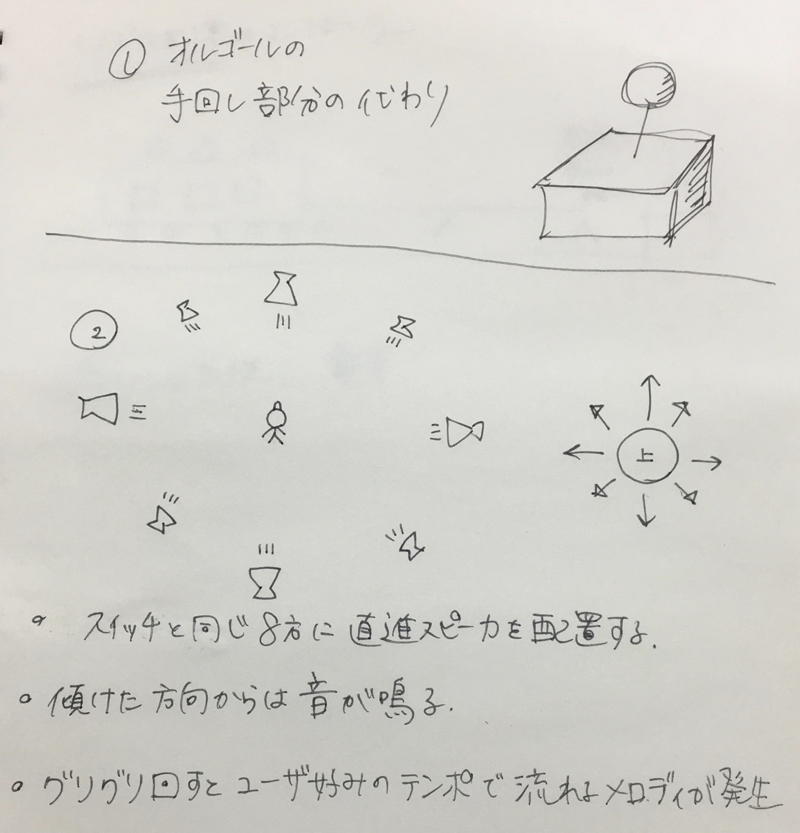 ① オルゴールの
手回し部分の代わり
②
上
• スイッチと同じ8方に直進スピーカを配置する.
• 傾けた方向からは音が鳴る.
• グリグリ回すとユーザ好みのテンポで流れるメロディが発生